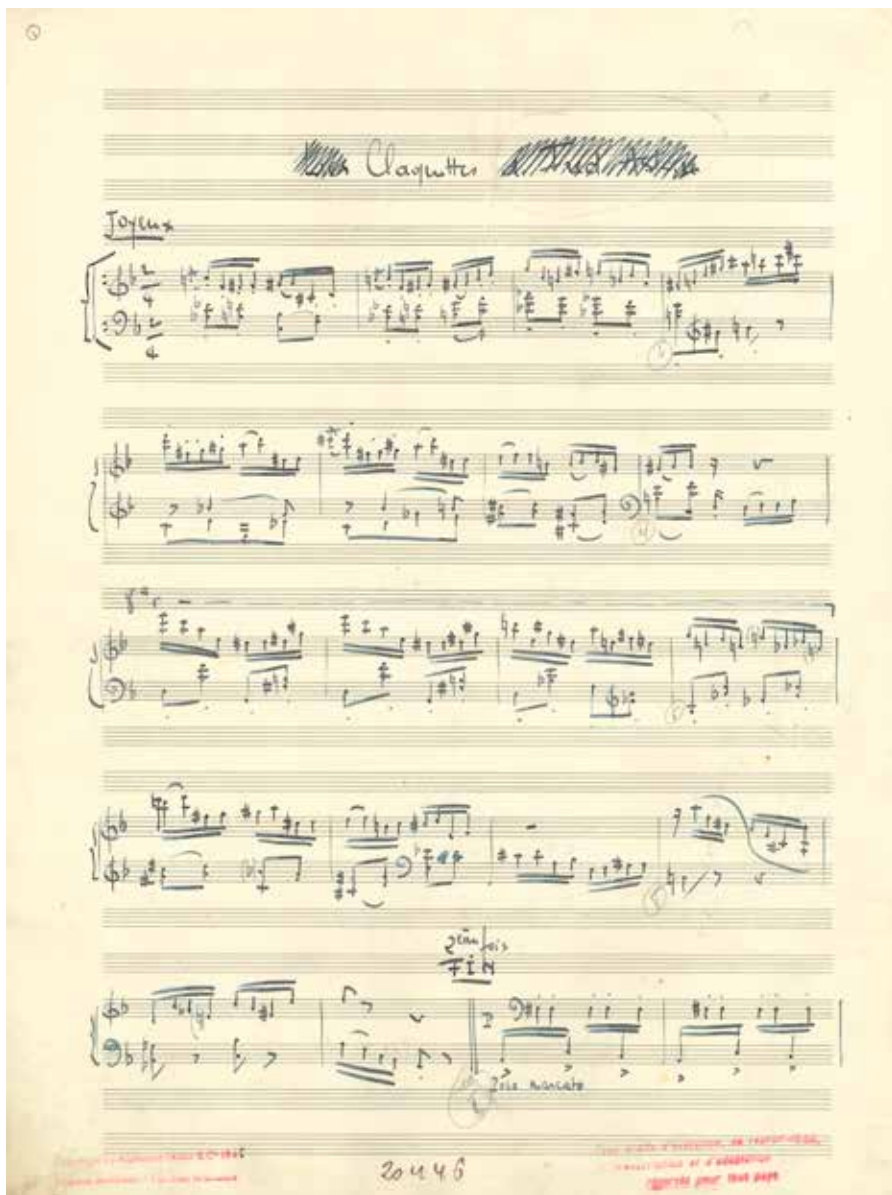 Claquettes
Joyeux
2 4
2 4
8va
2ème fois
FIN
Poco marcato
20446
Tous droits d'exécution, de reproduction,
transcription et d'adaptation
réservés pour tous pays